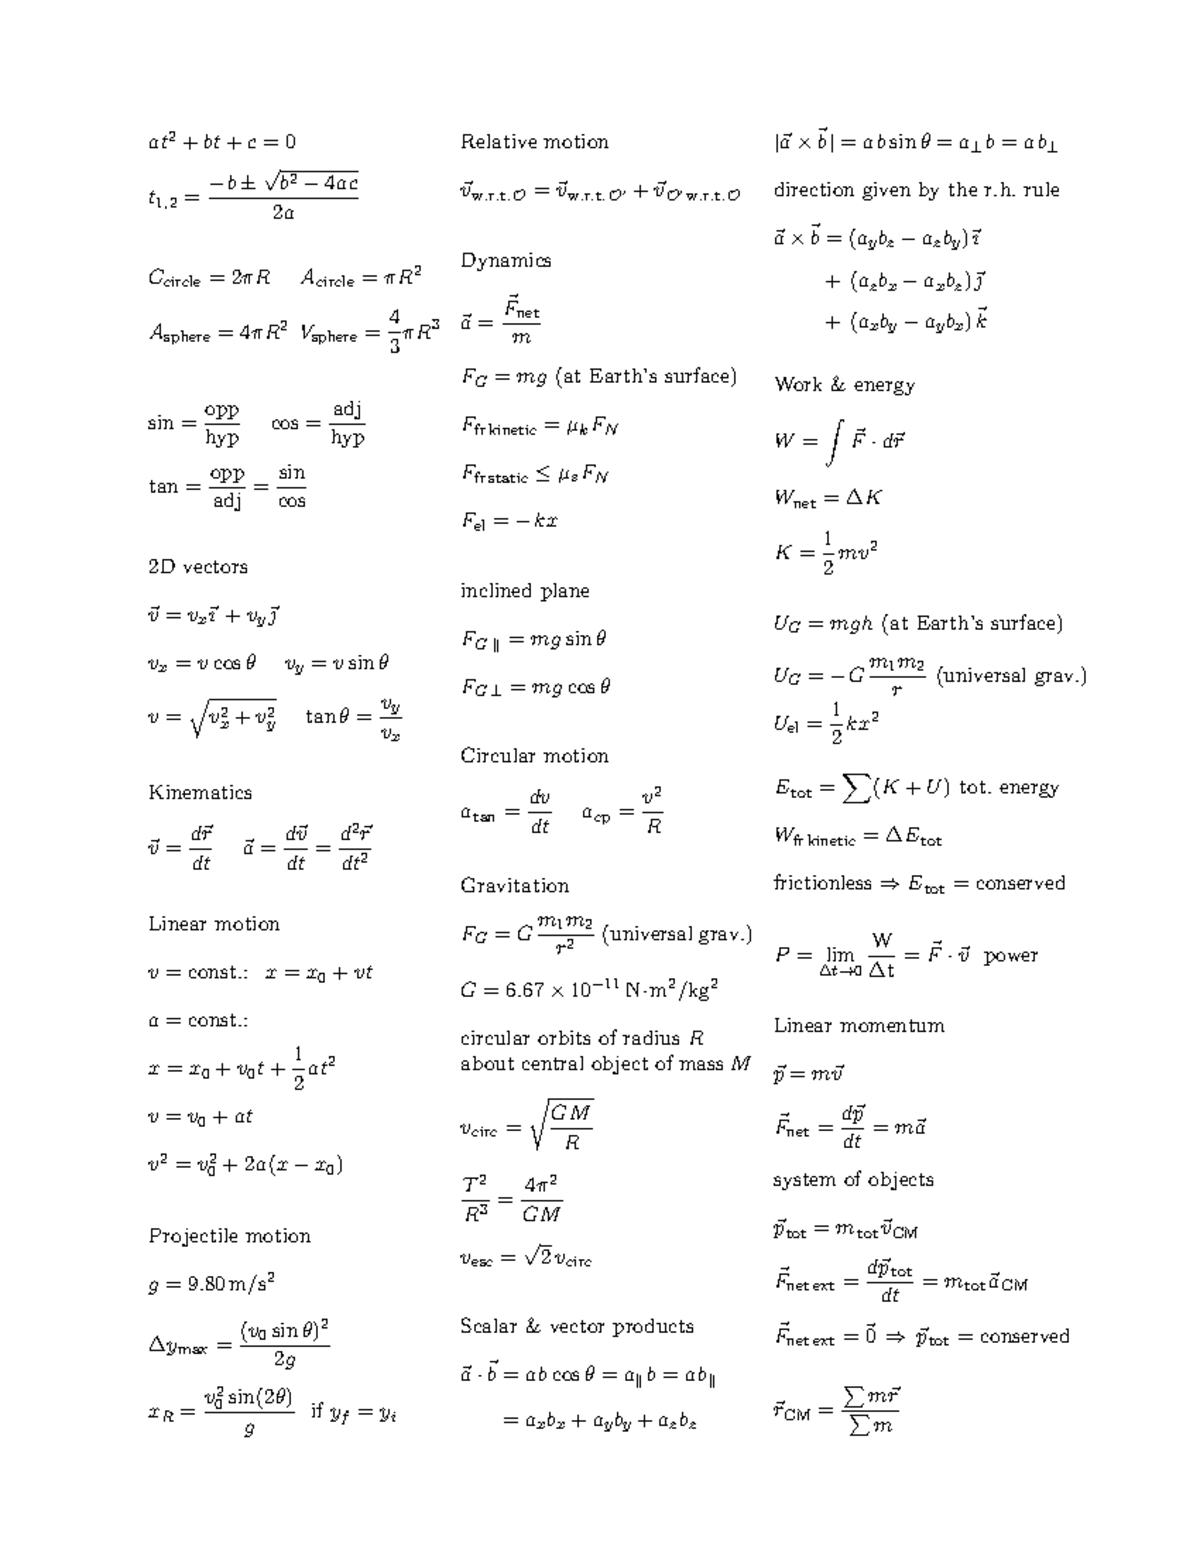 at² + bt + c = 0
t₁,₂ = (−b ± √(b² − 4ac)) / 2a
C_circle = 2πR A_circle = πR²
A_sphere = 4πR² V_sphere = 4/3 πR³
sin = opp/hyp cos = adj/hyp
tan = opp/adj = sin/cos
2D vectors
v⃗ = vₓı⃗ + v_yȷ⃗
vₓ = v cos θ v_y = v sin θ
v = √(vₓ² + v_y²) tan θ = v_y/vₓ
Kinematics
v⃗ = dr⃗/dt a⃗ = dv⃗/dt = d²r⃗/dt²
Linear motion
v = const.: x = x₀ + vt
a = const.:
x = x₀ + v₀t + 1/2 at²
v = v₀ + at
v² = v₀² + 2a(x − x₀)
Projectile motion
g = 9.80 m/s²
Δy_max = (v₀ sin θ)² / 2g
x_R = v₀² sin(2θ) / g if y_f = y_i
Relative motion
v⃗_w.r.t.𝒪 = v⃗_w.r.t.𝒪′ + v⃗_𝒪′ w.r.t.𝒪
Dynamics
a⃗ = F⃗_net / m
F_G = mg (at Earth's surface)
F_fr kinetic = μ_k F_N
F_fr static ≤ μ_s F_N
F_el = −kx
inclined plane
F_G∥ = mg sin θ
F_G⊥ = mg cos θ
Circular motion
a_tan = dv/dt a_cp = v²/R
Gravitation
F_G = G m₁m₂/r² (universal grav.)
G = 6.67 × 10⁻¹¹ N·m²/kg²
circular orbits of radius R
about central object of mass M
v_circ = √(GM/R)
T²/R³ = 4π²/GM
v_esc = √2 v_circ
Scalar & vector products
a⃗ · b⃗ = ab cos θ = a∥b = ab∥
= aₓbₓ + a_yb_y + a_zb_z
|a⃗ × b⃗| = ab sin θ = a⊥b = ab⊥
direction given by the r.h. rule
a⃗ × b⃗ = (a_yb_z − a_zb_y)ı⃗
+ (a_zbₓ − aₓb_z)ȷ⃗
+ (aₓb_y − a_ybₓ)k⃗
Work & energy
W = ∫ F⃗ · dr⃗
W_net = ΔK
K = 1/2 mv²
U_G = mgh (at Earth's surface)
U_G = −G m₁m₂/r (universal grav.)
U_el = 1/2 kx²
E_tot = ∑(K + U) tot. energy
W_fr kinetic = ΔE_tot
frictionless ⇒ E_tot = conserved
P = lim_Δt→0 W/Δt = F⃗ · v⃗ power
Linear momentum
p⃗ = mv⃗
F⃗_net = dp⃗/dt = ma⃗
system of objects
p⃗_tot = m_tot v⃗_CM
F⃗_net ext = dp⃗_tot/dt = m_tot a⃗_CM
F⃗_net ext = 0⃗ ⇒ p⃗_tot = conserved
r⃗_CM = ∑mr⃗ / ∑m